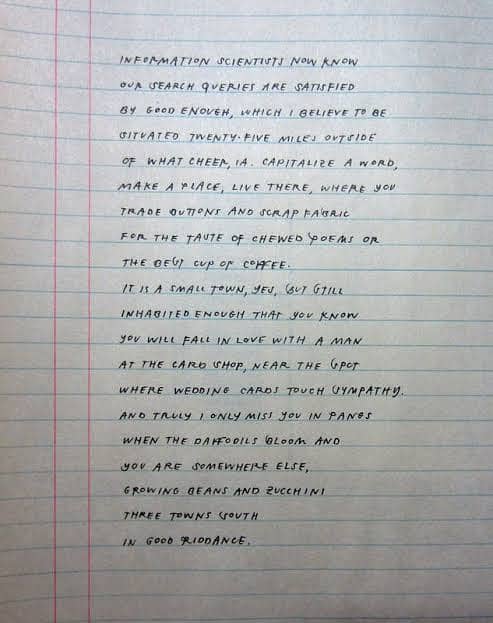 INFORMATION SCIENTISTS NOW KNOW
OUR SEARCH QUERIES ARE SATISFIED
BY GOOD ENOUGH, WHICH I BELIEVE TO BE
SITUATED TWENTY-FIVE MILES OUTSIDE
OF WHAT CHEER, IA. CAPITALIZE A WORD,
MAKE A PLACE, LIVE THERE, WHERE YOU
TRADE BUTTONS AND SCRAP FABRIC
FOR THE TASTE OF CHEWED POEMS OR
THE BEST CUP OF COFFEE.
IT IS A SMALL TOWN, YES, BUT STILL
INHABITED ENOUGH THAT YOU KNOW
YOU WILL FALL IN LOVE WITH A MAN
AT THE CARD SHOP, NEAR THE SPOT
WHERE WEDDING CARDS TOUCH SYMPATHY.
AND TRULY I ONLY MISS YOU IN PANGS
WHEN THE DAFFODILS BLOOM AND
YOU ARE SOMEWHERE ELSE,
GROWING BEANS AND ZUCCHINI
THREE TOWNS SOUTH
IN GOOD RIDDANCE.